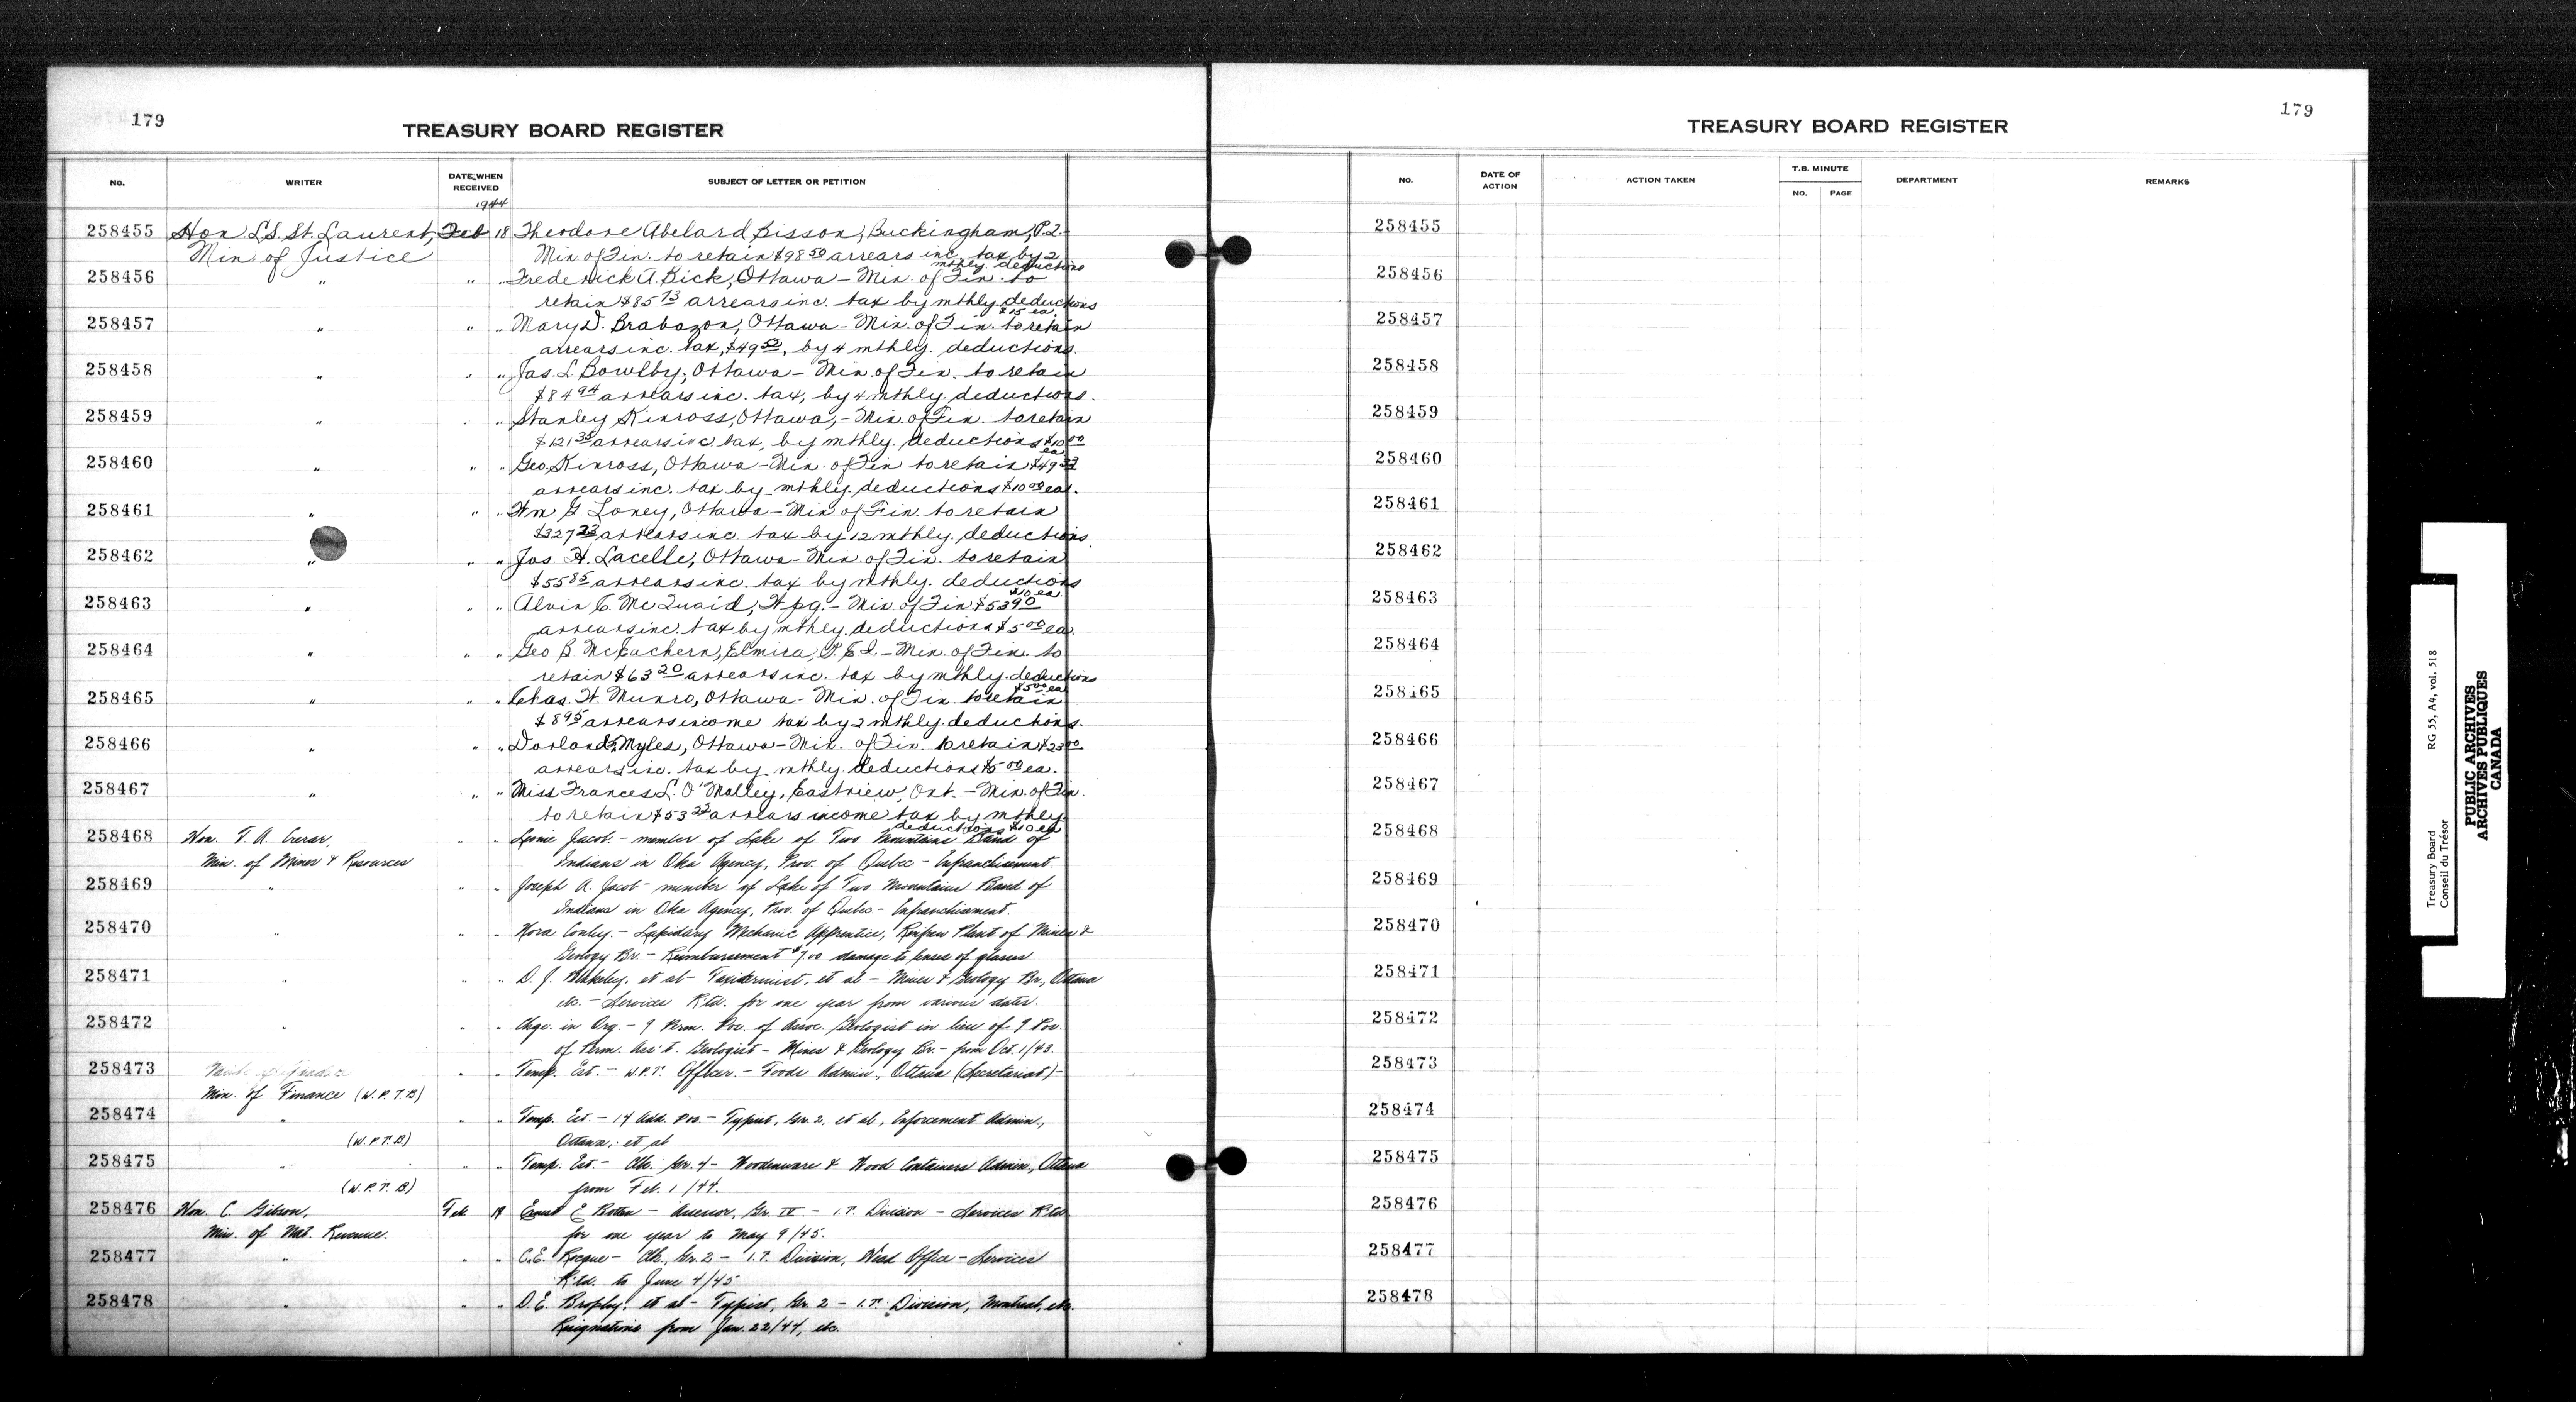 179
TREASURY BOARD REGISTER
NO. WRITER DATE WHEN RECEIVED SUBJECT OF LETTER OR PETITION
1944
258455 Hon. L.S. St. Laurent, Feb 18 Theodore Abelard Bisson, Buckingham, P.Q.
Min of Justice Min. of Fin. to retain $98 50 arrears inc. tax by 2
mthly. deductions
258456 " " " Frederick A. Bick, Ottawa - Min. of Fin. to
retain $85 73 arrears inc. tax by mthly. deductions
$15 ea.
258457 " " " Mary D. Brabazon, Ottawa - Min. of Fin. to retain
arrears inc. tax, $49 52, by 4 mthly. deductions.
258458 " " " Jas. L. Bowlby, Ottawa - Min. of Fin. to retain
$84 94 arrears inc. tax, by 4 mthly. deductions.
258459 " " " Stanley Kinross, Ottawa, - Min. of Fin. to retain
$121 35 arrears inc. tax, by mthly. deductions $10 00
ea.
258460 " " " Geo. Kinross, Ottawa - Min. of Fin to retain $49 33
arrears inc. tax by mthly. deductions $10 00 ea.
258461 " " " Wm G. Loney, Ottawa - Min of Fin. to retain
$327 23 arrears inc. tax by 12 mthly. deductions.
258462 " " " Jos. H. Lacelle, Ottawa - Min of Fin. to retain
$55 85 arrears inc. tax by mthly. deductions
$10 ea.
258463 " " " Alvin C. McQuaid, Wpg. - Min. of Fin $53 90
arrears inc. tax by mthly. deductions $5 00 ea.
258464 " " " Geo B. McEachern, Elmira, P.E.I. - Min. of Fin. to
retain $63 20 arrears inc. tax by mthly. deductions
$5 00 ea
258465 " " " Chas. H. Munro, Ottawa - Min. of Fin to retain
$8 95 arrears income tax by 2 mthly. deductions.
258466 " " " Myles, Ottawa - Min. of Fin. to retain $23 00
arrears inc. tax by mthly. deductions $5 00 ea.
258467 " " " Miss Frances L. O'Malley, Eastview, Ont. - Min. of Fin.
to retain $53 22 arrears income tax by mthly.
deductions $10 ea
258468 Hon. T. A. Crerar, " " Leonie Jacob - member of Lake of Two Mountains Band of
Min. of Mines & Resources Indians in Oka Agency, Prov. of Quebec - Enfranchisement
258469 " " " Joseph A. Jacob - member of Lake of Two Mountains Band of
Indians in Oka Agency, Prov. of Quebec - Enfranchisement.
258470 " " " Nora Conley. - Lapidary Mechanic Apprentice, Renfrew Plant of Mines &
Geology Br. - Reimbursement $7.00 damage to lenses of glasses
258471 " " " D. J. Blakeley, et al - Taxidermist, et al - Mines & Geology Br., Ottawa
etc. - Services R'td. for one year from various dates.
258472 " " " Chge. in Org. - 9 Perm. Pos. of Assoc. Geologist in lieu of 9 Pos.
of Perm. Ass't. Geologist - Mines & Geology Br. - from Oct. 1/43.
258473 " " Temp. Est. - W.P.T. Officer - Foods Admin., Ottawa (Secretariat) -
Min. of Finance (W.P.T.B.)
258474 " " " Temp. Est. - 14 Add. Pos. - Typist, Gr. 2, et al, Enforcement Admin.,
(W.P.T.B) Ottawa, et al
258475 " " " Temp. Est. - Clk. Gr. 4 - Woodenware & Wood Containers Admin., Ottawa
(W.P.T.B) from Feb. 1/44.
258476 Hon. C. Gibson, Feb. 19 Ernest E. - Assessor, Gr. IV - I.T. Division - Services R'td
Min. of Nat. Revenue. for one year to May 9/45.
258477 " " " C.E. Rogue - Clk., Gr. 2 - I.T. Division, Head Office - Services
R'td. to June 4/45
258478 " " " D.E. Brophy, et al - Typist, Gr. 2 - I.T. Division, Montreal, etc.
Resignations from Jan. 22/44, etc.
179
TREASURY BOARD REGISTER
NO. DATE OF ACTION ACTION TAKEN T.B. MINUTE NO. PAGE DEPARTMENT REMARKS
258455
258456
258457
258458
258459
258460
258461
258462
258463
258464
258465
258466
258467
258468
258469
258470
258471
258472
258473
258474
258475
258476
258477
258478
Treasury Board RG 55, A4, vol. 518
Conseil du Trésor
PUBLIC ARCHIVES
ARCHIVES PUBLIQUES
CANADA